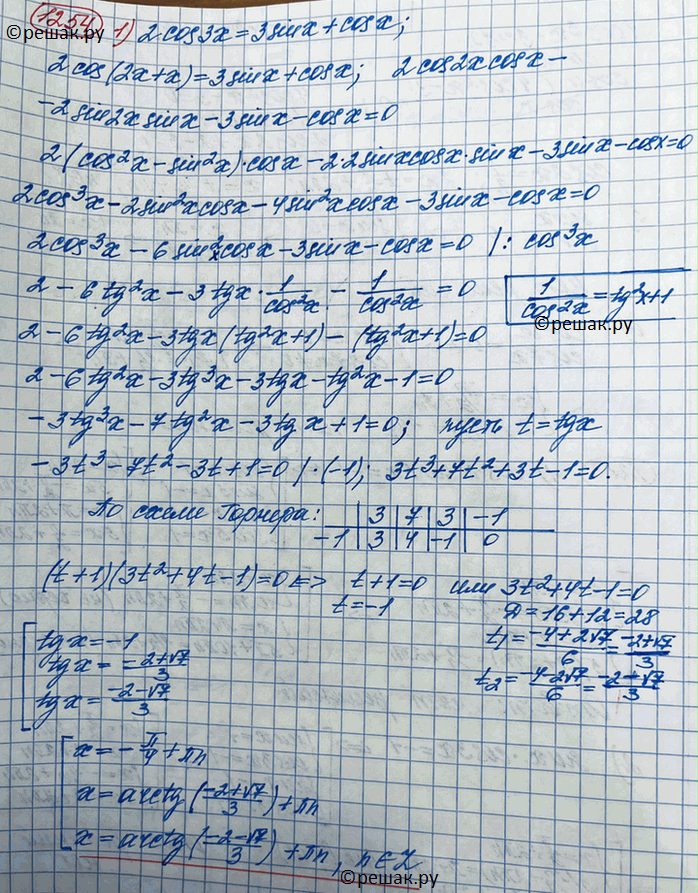 1254 1) 2cos3x = 3sinx + cosx;
©решак.ру
2cos(2x+x) = 3sinx + cosx; 2cos2x cosx −
−2sin2x sinx − 3sinx − cosx = 0
2(cos²x − sin²x)·cosx − 2·2sinxcosx·sinx − 3sinx − cosx = 0
2cos³x − 2sin²xcosx − 4sin²xcosx − 3sinx − cosx = 0
2cos³x − 6sin²xcosx − 3sinx − cosx = 0 |: cos³x
2 − 6tg²x − 3tgx · 1/cos²x − 1/cos²x = 0 1/cos²x = tg²x+1
©решак.ру
2 − 6tg²x − 3tgx(tg²x+1) − (tg²x+1) = 0
2 − 6tg²x − 3tg³x − 3tgx − tg²x − 1 = 0
−3tg³x − 7tg²x − 3tgx + 1 = 0; пусть t = tgx
−3t³ − 7t² − 3t + 1 = 0 |·(−1); 3t³ + 7t² + 3t − 1 = 0.
По схеме Горнера: | 3 | 7 | 3 | −1
−1 | 3 | 4 | −1 | 0
(t+1)(3t²+4t−1) = 0 <=> t+1=0 или 3t²+4t−1=0
t = −1 D = 16+12 = 28
tgx = −1 t₁ = (−4+2√7)/6 = (−2+√7)/3
tgx = (−2+√7)/3
tgx = (−2−√7)/3 t₂ = (−4−2√7)/6 = (−2−√7)/3
x = −π/4 + πn
x = arctg((−2+√7)/3) + πn
x = arctg((−2−√7)/3) + πn, n∈Z
©решак.ру